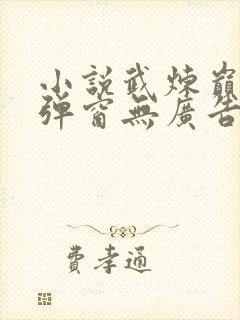 小說武煉巔
彈窗無廣告
費孝通